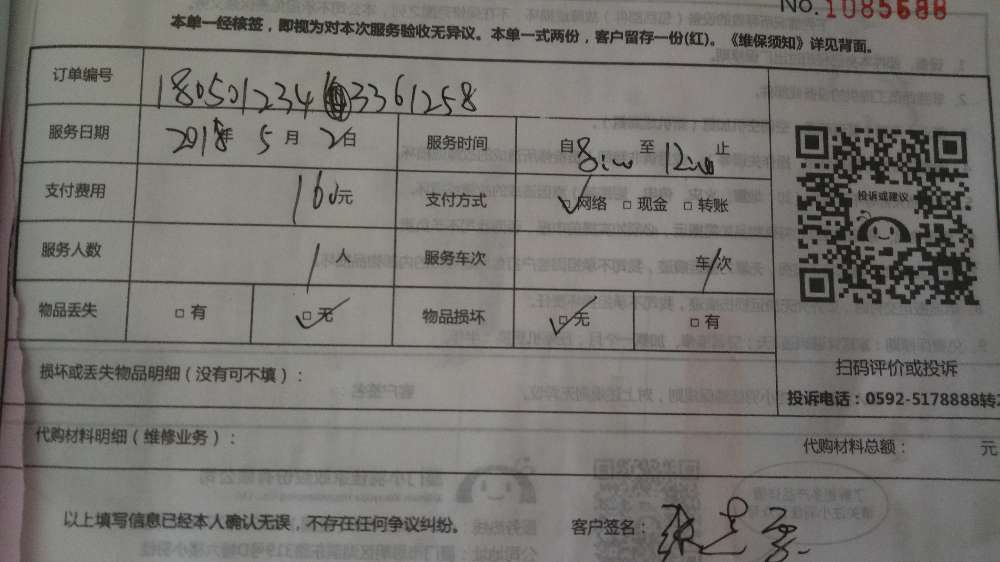 No.1085688
本单一经核签，即视为对本次服务验收无异议。本单一式两份，客户留存一份(红)。《维保须知》详见背面。
订单编号 180501234 3361258
服务日期 2018年 5 月 2日 服务时间 自8:00 至 12:00 止
支付费用 160元 支付方式 □网络 □现金 □转账
投诉或建议
服务人数 1人 服务车次 车/次
物品丢失 □有 □无 物品损坏 □无 □有
扫码评价或投诉
损坏或丢失物品明细（没有可不填）：
投诉电话：0592-5178888转2
代购材料明细（维修业务）：
代购材料总额： 元
以上填写信息已经本人确认无误，不存在任何争议纠纷。 客户签名：